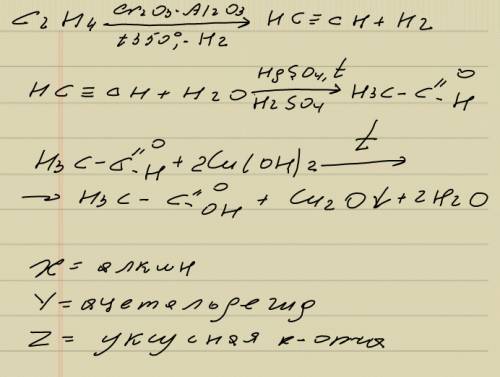 C2H4 Cr2O3-Al2O3 t350°,-H2 → HC≡CH + H2
HC≡CH + H2O HgSO4,t H2SO4 → H3C-C=O-H
H3C-C=O-H + 2Cu(OH)2 t →
→ H3C-C=O-OH + Cu2O↓ + 2H2O
X = алкин
Y = ацетальдегид
Z = уксусная к-отиа